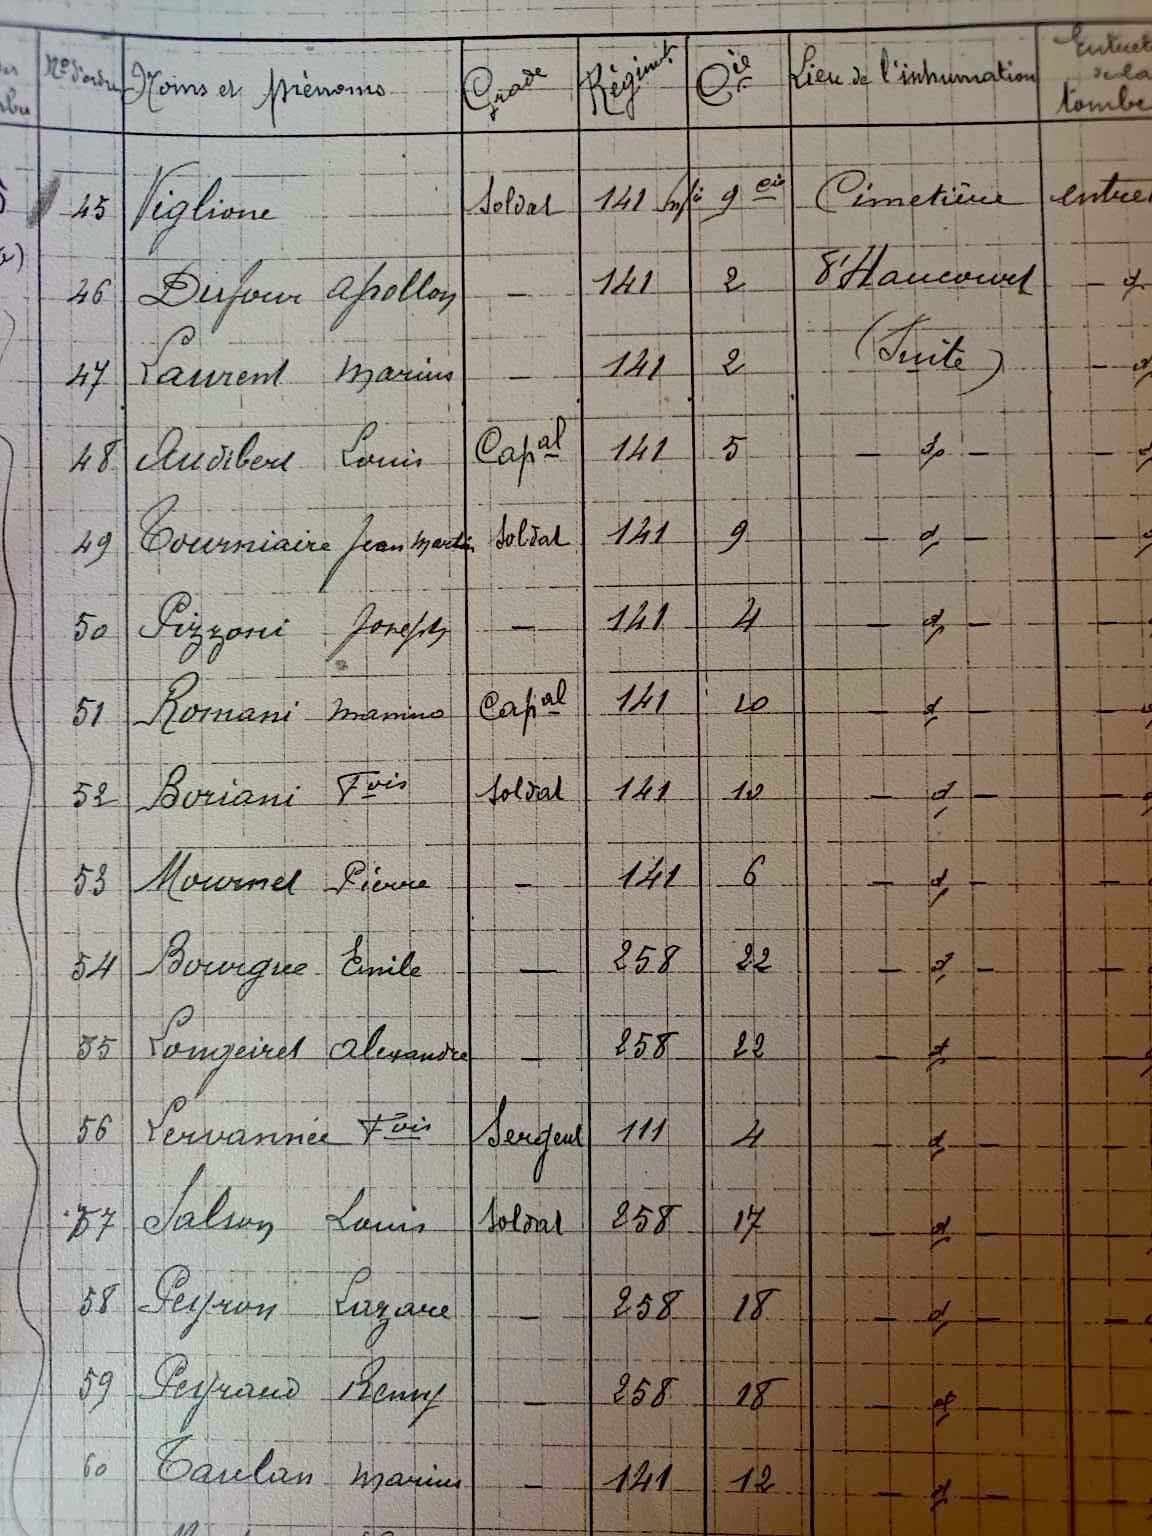 N° d'ordre Noms et prénoms Grade Régiment Cie Lieu de l'inhumation Entret de la tombe
45 Viglione Soldat 141 Infie 9 cie Cimetière entre
46 Dufour Apollon — 141 2 d'Haucourt — d
47 Laurent Marius — 141 2 (Suite) — d
48 Audibert Louis Capal 141 5 — do — — d
49 Tourniaire Jean Martin Soldat 141 9 — do — — d
50 Pizzoni Joseph — 141 4 — do — —
51 Romani Manino Capal 141 10 — do — — d
52 Boriani Fois Soldat 141 10 — do — — d
53 Mournet Pierre — 141 6 — do — —
54 Bourgue Emile — 258 22 — do — —
55 Longeiret Alexandre — 258 22 — do — —
56 Lervannée Fois Sergent 111 4 — do — —
57 Salson Louis Soldat 258 17 — do — —
58 Peyron Lazare — 258 18 — do — —
59 Peyraud Remy — 258 18 — do — —
60 Taulan Marius — 141 12 — do — —